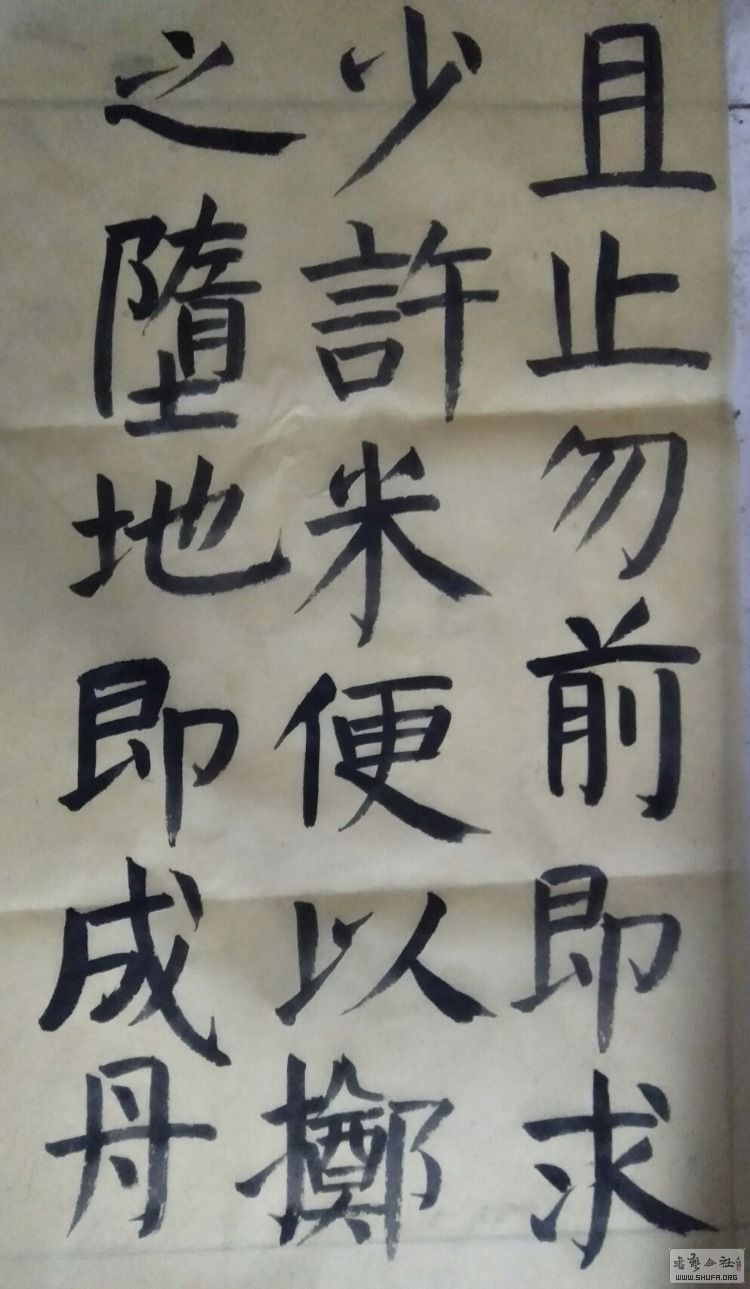 且止勿前即求
少許米便以擲
之墮地即成丹
书艺公社
WWW.SHUFA.ORG